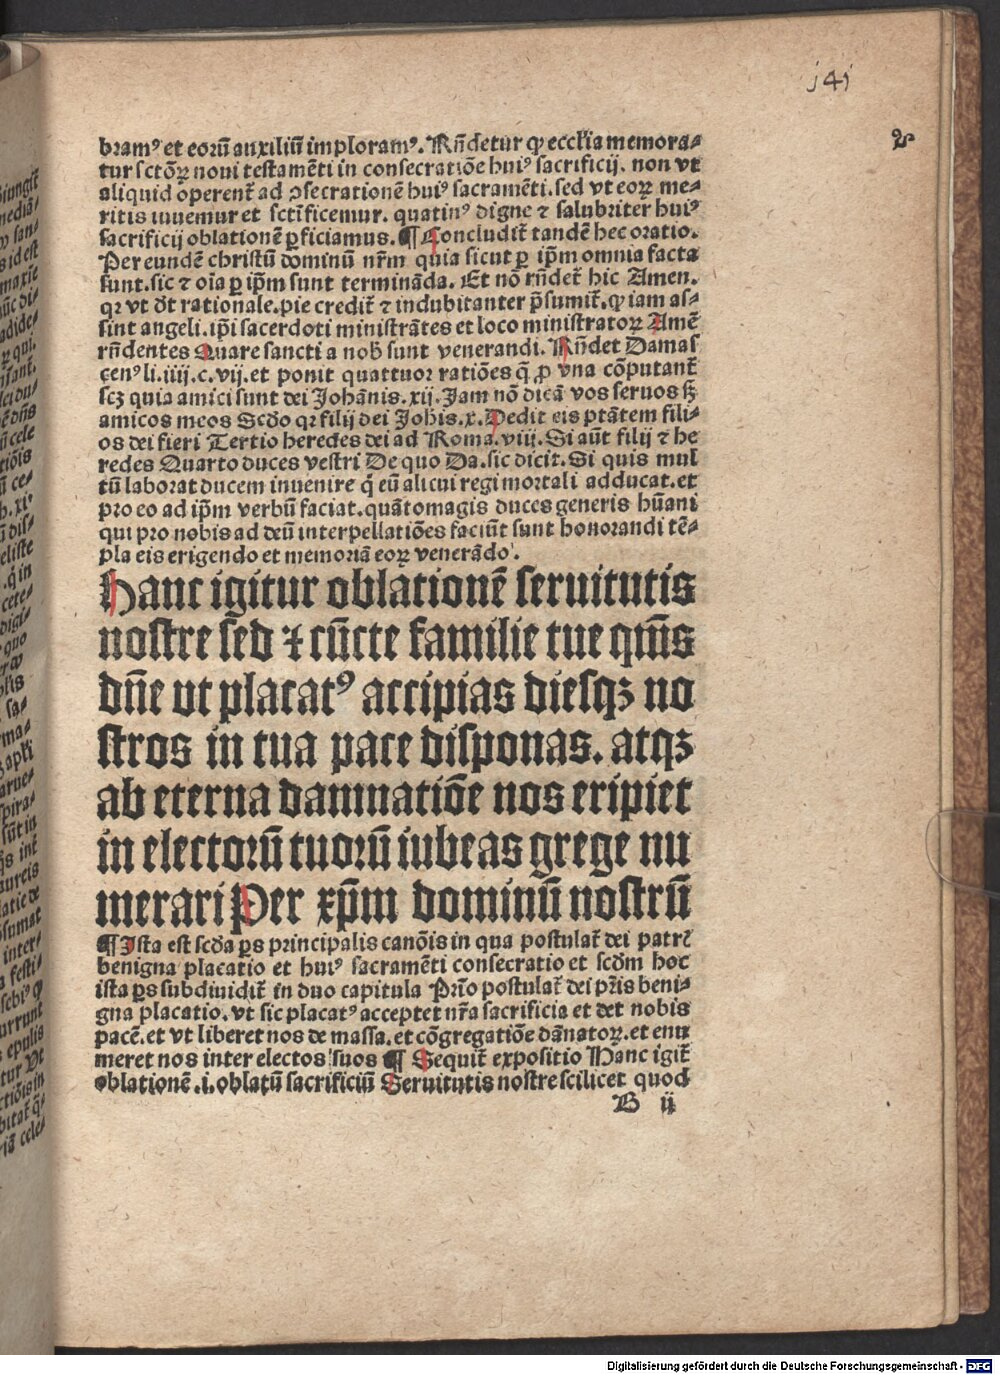 j4j
2
bramꝰ et eorũ auxiliũ imploramꝰ. Rñdetur ꝙ eccl̃ia memora⸗
tur sctõꝝ noui testamẽti in consecratiõe huiꝰ sacrificij. non vt
aliquid operent̃ ad ↄsecrationẽ huiꝰ sacramẽti. sed vt eoꝝ me⸗
ritis iuuemur et sctificemur. quatinꝰ digne ⁊ salubriter huiꝰ
sacrificij oblationẽ ꝑficiamus. ¶ Concludit̃ tandẽ hec oratio.
Per eundẽ christũ dominũ nr̃m quia sicut ꝑ ip̃m omnia facta
sunt. sic ⁊ oĩa ꝑ ip̃m sunt terminãda. Et nõ rñdet̃ hic Amen.
qꝛ vt dt̃ rationale. pie credit̃ ⁊ indubitanter p̃sumit̃. ꝙ iam as⸗
sint angeli. ip̃i sacerdoti ministrãtes et loco ministratoꝝ Amẽ
rñdentes Quare sancti a nob̃ sunt venerandi. Rñdet Damas
cenꝰ li. iiij. c. vij. et ponit quattuor ratiões q̃ ꝓ vna cõputant̃
scꝫ quia amici sunt dei Johãnis. xij. Jam nõ dicã vos seruos sꝫ
amicos meos Scd̃o qꝛ filij dei Joh̃is. x. Dedit eis ptãtem fili⸗
os dei fieri Tertio heredes dei ad Roma. viij. Si aũt filij ⁊ he
redes Quarto duces vestri De quo Da. sic dicit. Si quis mul
tũ laborat ducem inuenire q̃ eũ alicui regi mortali adducat. et
pro eo ad ip̃m verbũ faciat. quãtomagis duces generis hũani
qui pro nobis ad deũ interpellatiões faciũt sunt honorandi tẽ⸗
pla eis erigendo et memoriã eoꝝ venerãdo.
Hanc igitur oblationẽ seruitutis
nostre sed ⁊ cũcte familie tue qm̃s
dñe ut placatꝰ accipias diesqꝫ no
stros in tua pace disponas. atqꝫ
ab eterna damnatiõe nos eripiet
in electorũ tuorũ iubeas grege nu
merari Per xp̃m dominũ nostrũ
¶ Ista est scd̃a ꝑs principalis canõis in qua postulat̃ dei patrꝭ
benigna placatio et huiꝰ sacramẽti consecratio et scd̃m hoc
ista ꝑs subdiuidit̃ in duo capitula Prĩo postulat̃ dei pr̃is beni⸗
gna placatio. vt sic placatꝰ acceptet nr̃a sacrificia et det nobis
pacẽ. et vt liberet nos de massa. et cõgregatiõe dãnatoꝝ. et enu
meret nos inter electos suos ¶ Sequit̃ expositio Hanc igit̃
oblationẽ. i. oblatũ sacrificiũ Seruitutis nostre scilicet quod
B ij
Digitalisierung gefördert durch die Deutsche Forschungsgemeinschaft - DFG